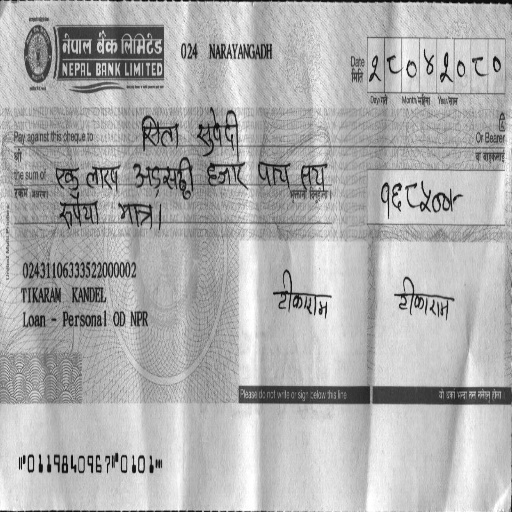 नेपाल बैंक लिमिटेड
NEPAL BANK LIMITED
024 NARAYANGADH
Date मिति २८०४२०८०
Day/गते Month/महिना Year/साल
Pay against this cheque to सिता सुवेदी Or Bearer
श्री वा वाहकलाई
the sum of एक लाख अड्सठ्ठी हजार पाच सय
रुपैया मात्र।
१६८५००
02431106333522000002
TIKARAM KANDEL
Loan - Personal OD NPR
टीकाराम टीकाराम
Please do not write or sign below this line
⑈0119840967⑈0101⑈